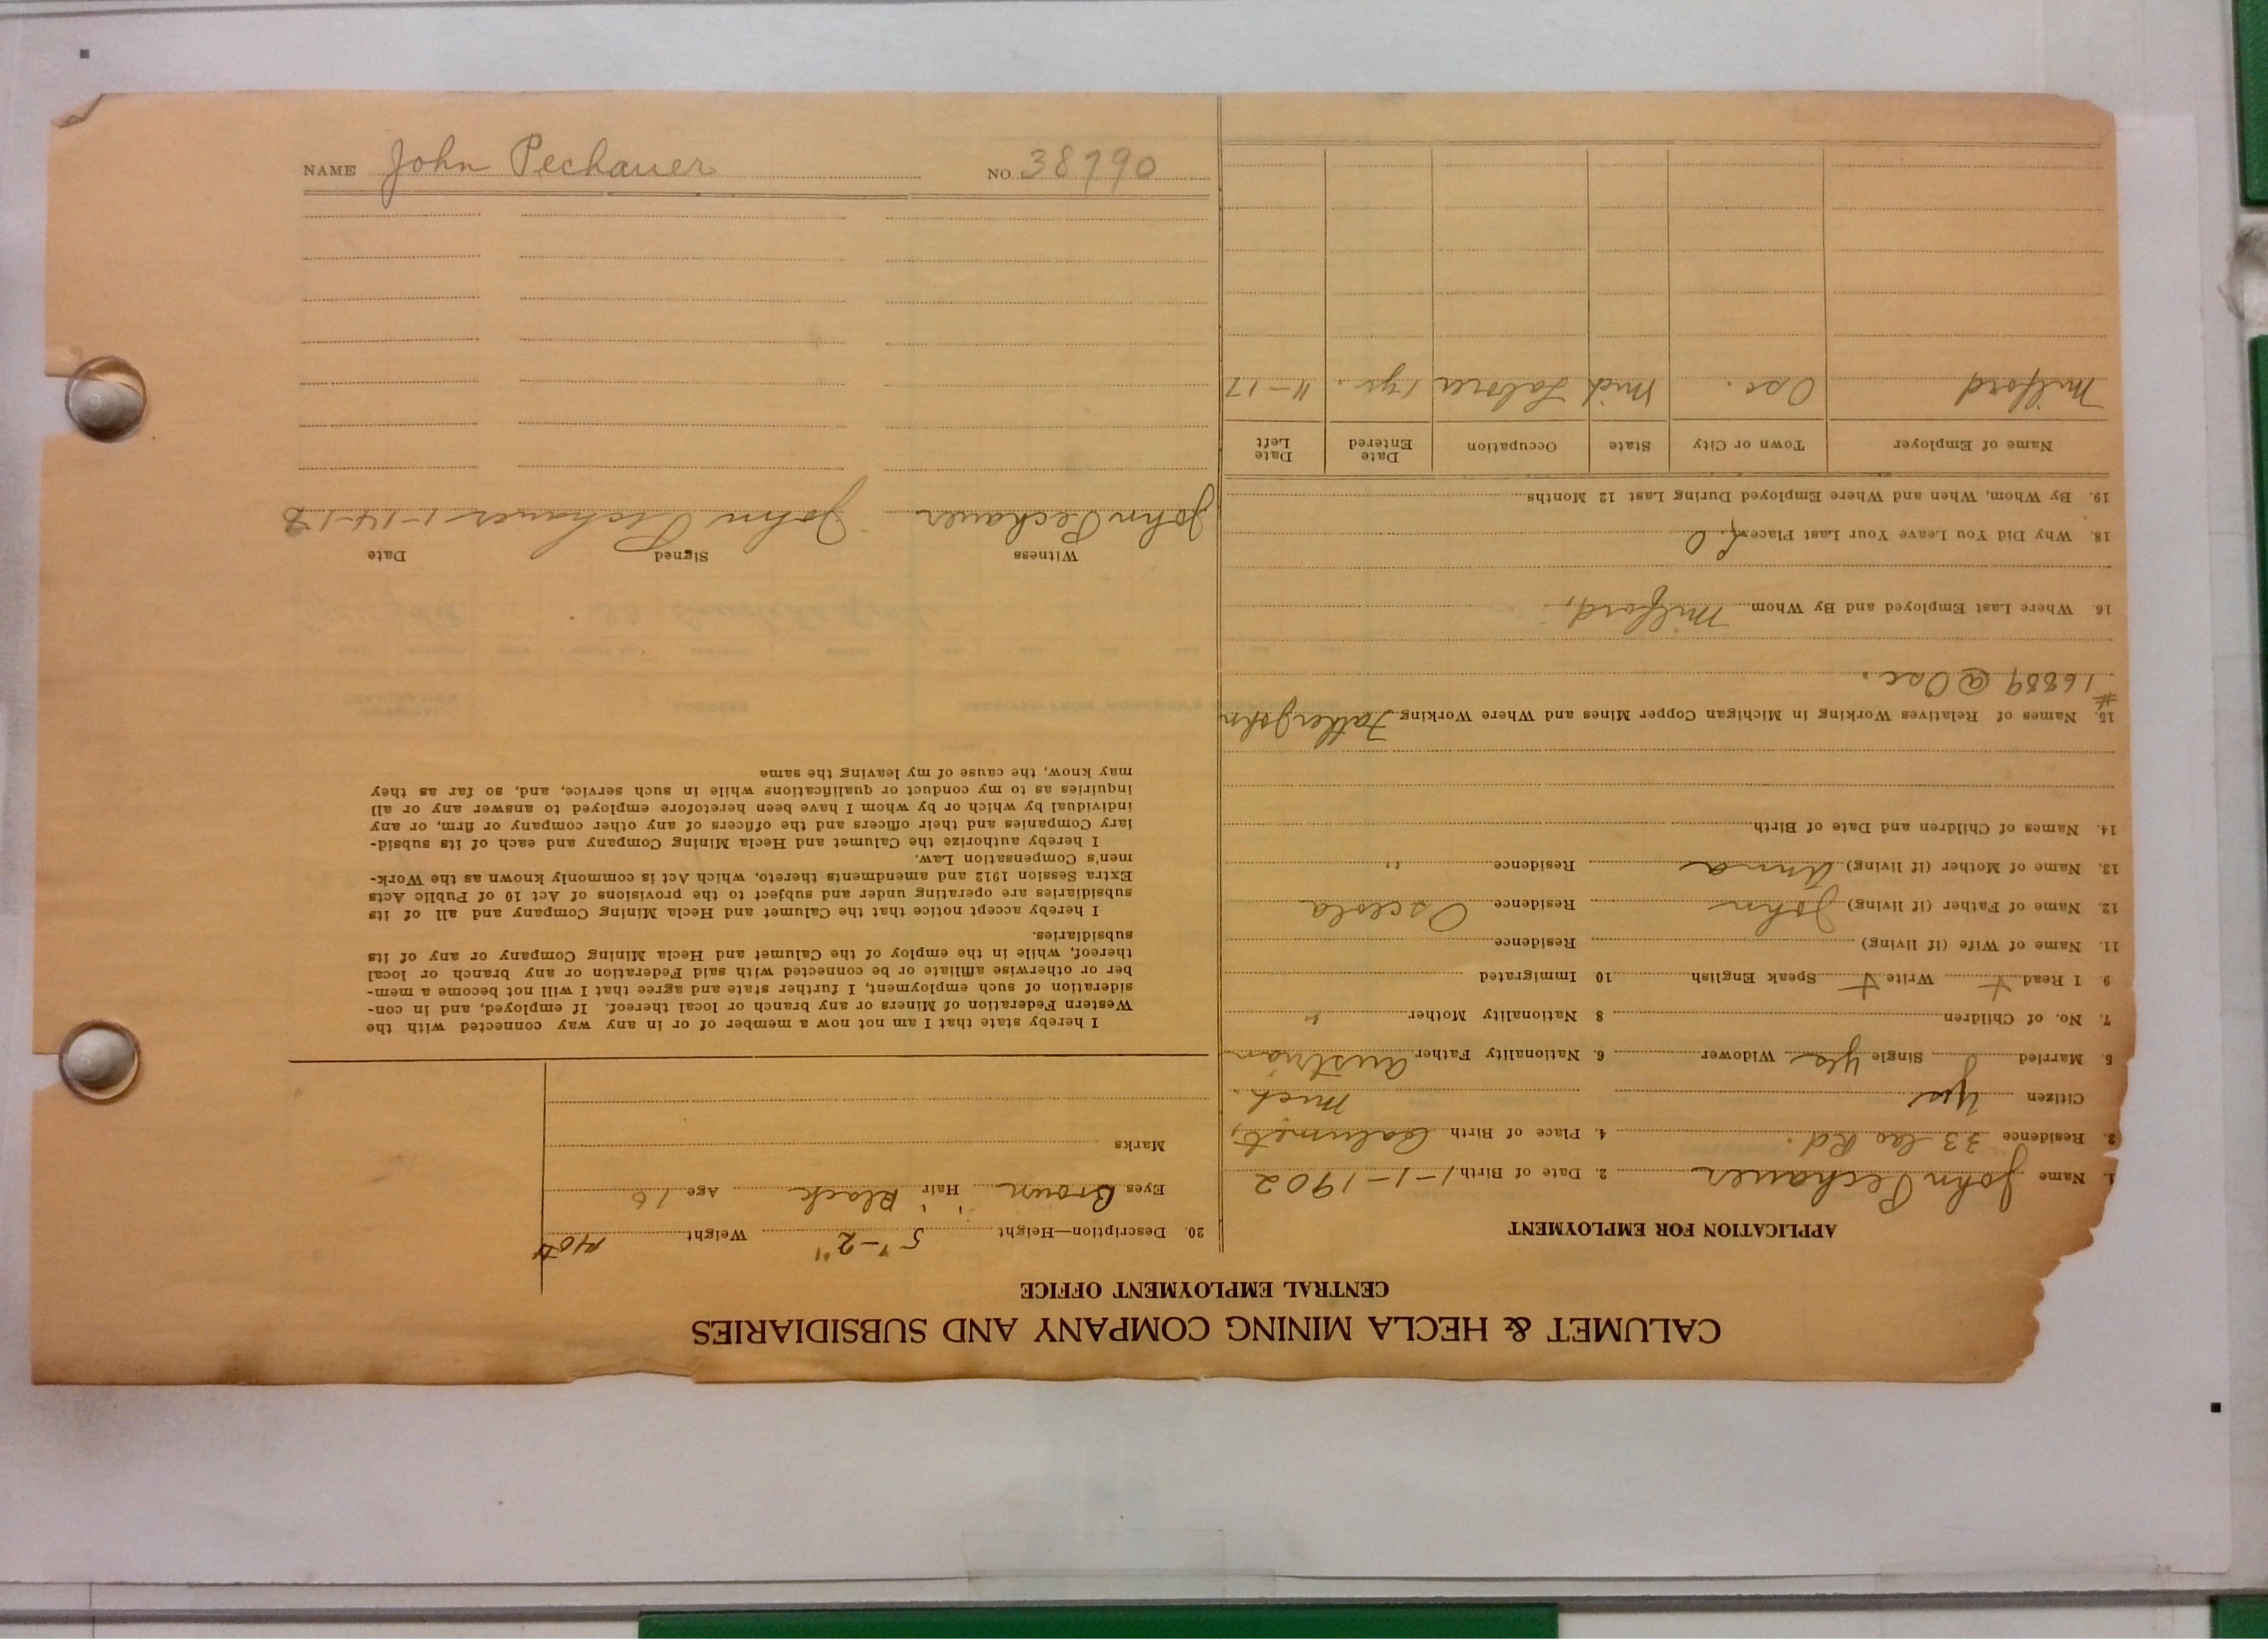 CALUMET & HECLA MINING COMPANY AND SUBSIDIARIES
CENTRAL EMPLOYMENT OFFICE
APPLICATION FOR EMPLOYMENT
1. Name John Pechauer 2. Date of Birth 1-1-1902
3. Residence 33 Cao Rd. 4. Place of Birth Calumet,
Citizen Yes Mich.
5. Married Single yes Widower 6. Nationality Father Austrian
7. No. of Children 8 Nationality Mother "
9 I Read Write Speak English 10 Immigrated
11. Name of Wife (if living) Residence
12. Name of Father (if living) John Residence Osceola
13. Name of Mother (if living) Anna Residence "
14. Names of Children and Date of Birth
15. Names of Relatives Working in Michigan Copper Mines and Where Working Father John
# 16889 @ Osc.
16. Where Last Employed and By Whom Milford,
18. Why Did You Leave Your Last Place
19. By Whom, When and Where Employed During Last 12 Months
Name of Employer Town or City State Occupation Date Entered Date Left
Milford Osc. Mich Laborer 1 yr. 11-17
20. Description—Height 5'-2" Weight
Eyes Brown Hair Black Age 16
Marks
I hereby state that I am not now a member of or in any way connected with the
Western Federation of Miners or any branch or local thereof. If employed, and in con-
sideration of such employment, I further state and agree that I will not become a mem-
ber or otherwise affiliate or be connected with said Federation or any branch or local
thereof, while in the employ of the Calumet and Hecla Mining Company or any of its
subsidiaries.
I hereby accept notice that the Calumet and Hecla Mining Company and all of its
subsidiaries are operating under and subject to the provisions of Act 10 of Public Acts
Extra Session 1912 and amendments thereto, which Act is commonly known as the Work-
men's Compensation Law.
I hereby authorize the Calumet and Hecla Mining Company and each of its subsid-
iary Companies and their officers and the officers of any other company or firm, or any
individual by which or by whom I have been heretofore employed to answer any or all
inquiries as to my conduct or qualifications while in such service, and, so far as they
may know, the cause of my leaving the same
Witness Signed Date
John Pechauer John Pechauer 1-14-18
NAME John Pechauer NO. 38790